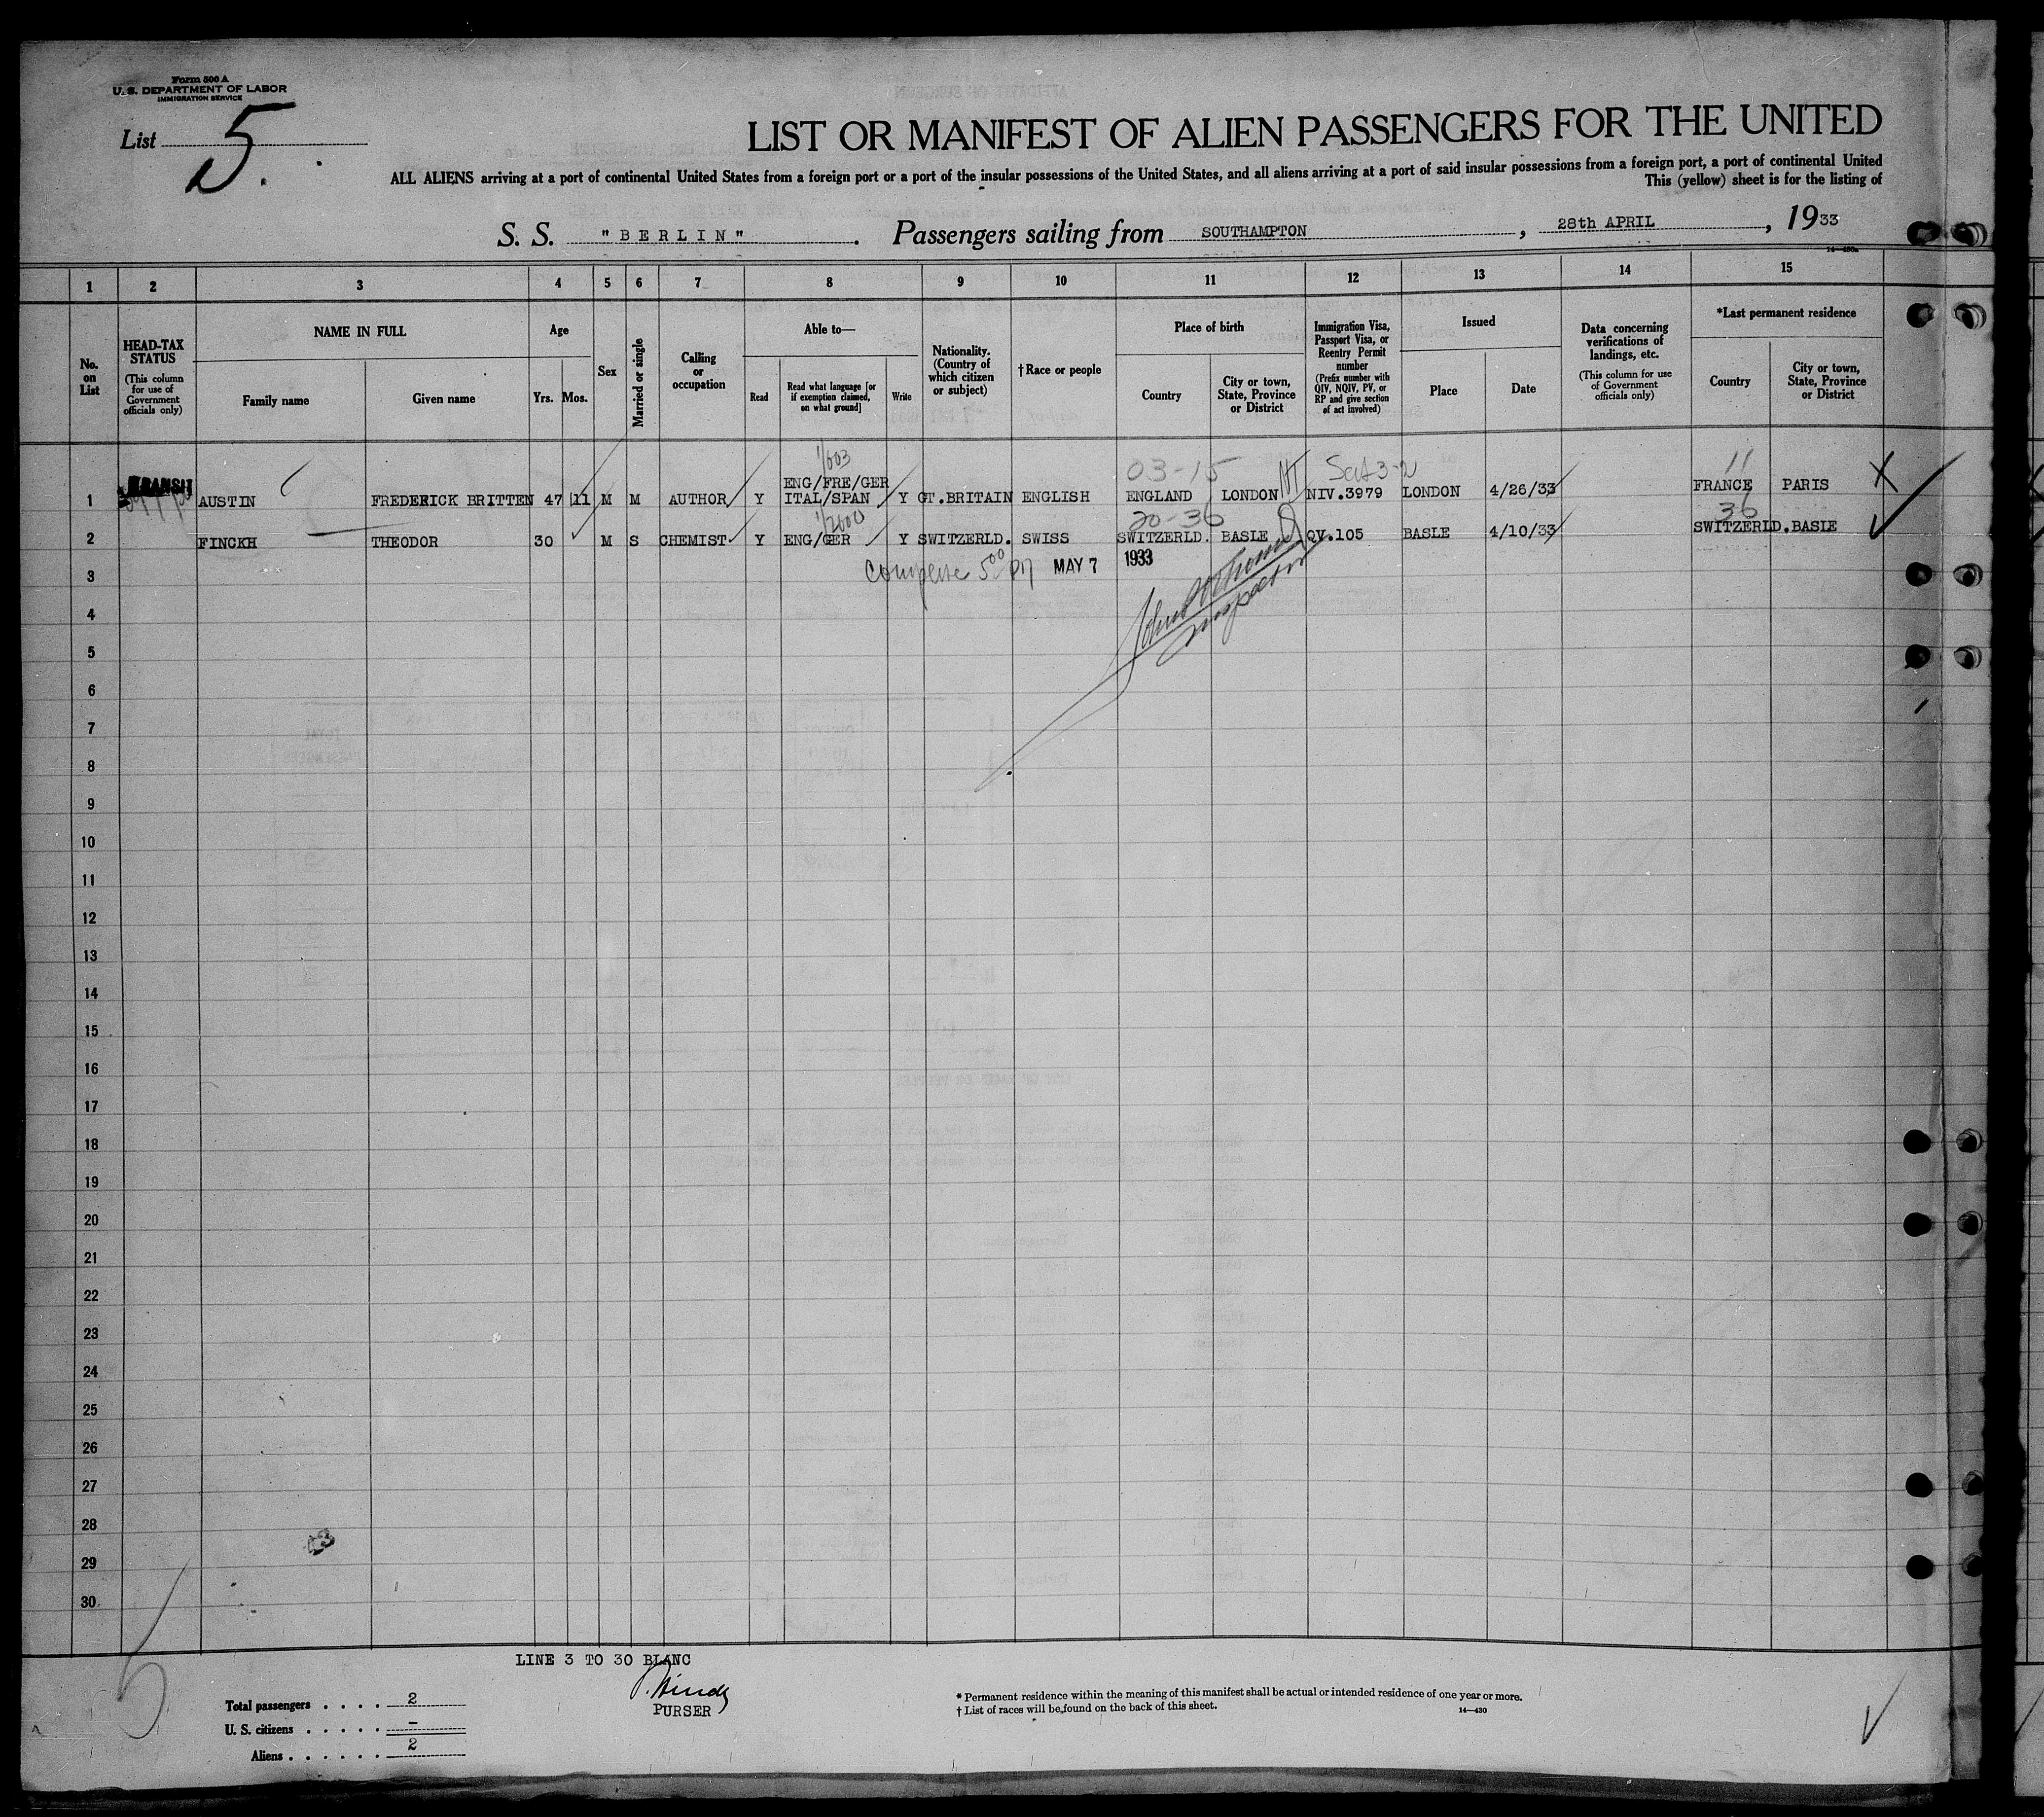 Form 500 A
U. S. DEPARTMENT OF LABOR
IMMIGRATION SERVICE
List 5.
LIST OR MANIFEST OF ALIEN PASSENGERS FOR THE UNITED
ALL ALIENS arriving at a port of continental United States from a foreign port or a port of the insular possessions of the United States, and all aliens arriving at a port of said insular possessions from a foreign port, a port of continental United
This (yellow) sheet is for the listing of
S. S. "BERLIN". Passengers sailing from SOUTHAMPTON, 28th APRIL, 1933
14—430a
1 2 3 4 5 6 7 8 9 10 11 12 13 14 15
No. on List
HEAD-TAX STATUS (This column for use of Government officials only)
NAME IN FULL
Family name
Given name
Age
Yrs. Mos.
Sex
Married or single
Calling or occupation
Able to—
Read
Read what language [or if exemption claimed, on what ground]
Write
Nationality. (Country of which citizen or subject)
†Race or people
Place of birth
Country
City or town, State, Province or District
Immigration Visa, Passport Visa, or Reentry Permit number (Prefix number with QIV, NQIV, PV, or RP and give section of act involved)
Issued
Place
Date
Data concerning verifications of landings, etc. (This column for use of Government officials only)
*Last permanent residence
Country
City or town, State, Province or District
1/603 03-15 Sect 3-2 11
TRANSIT
1 AUSTIN FREDERICK BRITTEN 47 11 M M AUTHOR Y ENG/FRE/GER ITAL/SPAN Y GT.BRITAIN ENGLISH ENGLAND LONDON NIV.3979 LONDON 4/26/33 FRANCE PARIS X
1/2600 20-36 36
2 FINCKH THEODOR 30 M S CHEMIST Y ENG/GER Y SWITZERLD. SWISS SWITZERLD. BASLE QV.105 BASLE 4/10/33 SWITZERLD.BASLE
3 500 PM MAY 7 1933
4 Inspector
5
6
7
8
9
10
11
12
13
14
15
16
17
18
19
20
21
22
23
24
25
26
27
28
29
30
LINE 3 TO 30 BLANC
PURSER
Total passengers . . . . 2
U. S. citizens . . . . . –
Aliens . . . . . . 2
* Permanent residence within the meaning of this manifest shall be actual or intended residence of one year or more.
† List of races will be found on the back of this sheet.
14—430